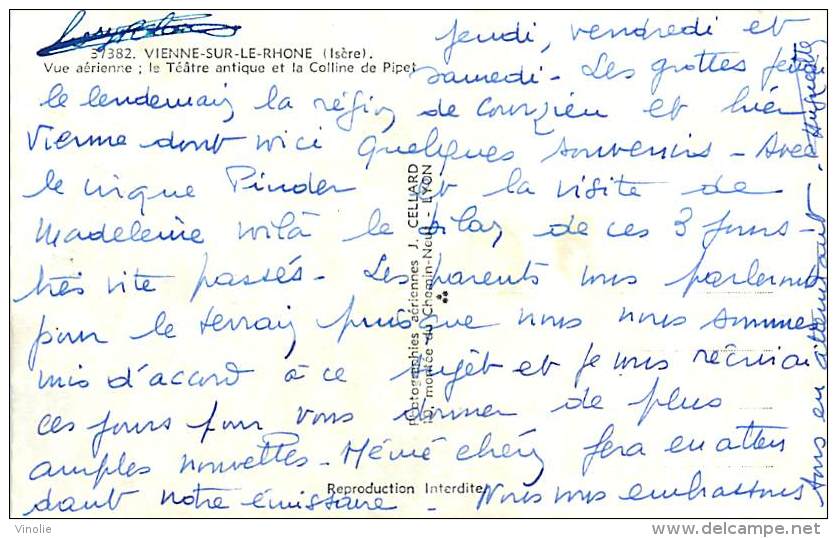 jeudi, vendredi et
37382. VIENNE-SUR-LE-RHONE (Isère).
Vue aérienne ; le Téâtre antique et la Colline de Pipet
samedi - Les grottes
le lendemain la région de Courzieu et hier
Vienne dont voici quelques souvenirs - Avec
le cirque Pinder et la visite de
Madeleine voilà le bilan de ces 3 jours -
très vite passés - Les parents vous parleront
pour le terrain puisque nous nous sommes
mis d'accord à ce sujet et je vous récrirai
ces jours pour vous donner de plus
amples nouvelles - Mémé chérie fera en atten
dant notre émissaire - Nous vous embrassons
tous en attendant -
Huguette
Photographies aériennes J. CELLARD
montée du Chemin-Neuf - LYON
Reproduction Interdite
Vinolie
delcampe.net